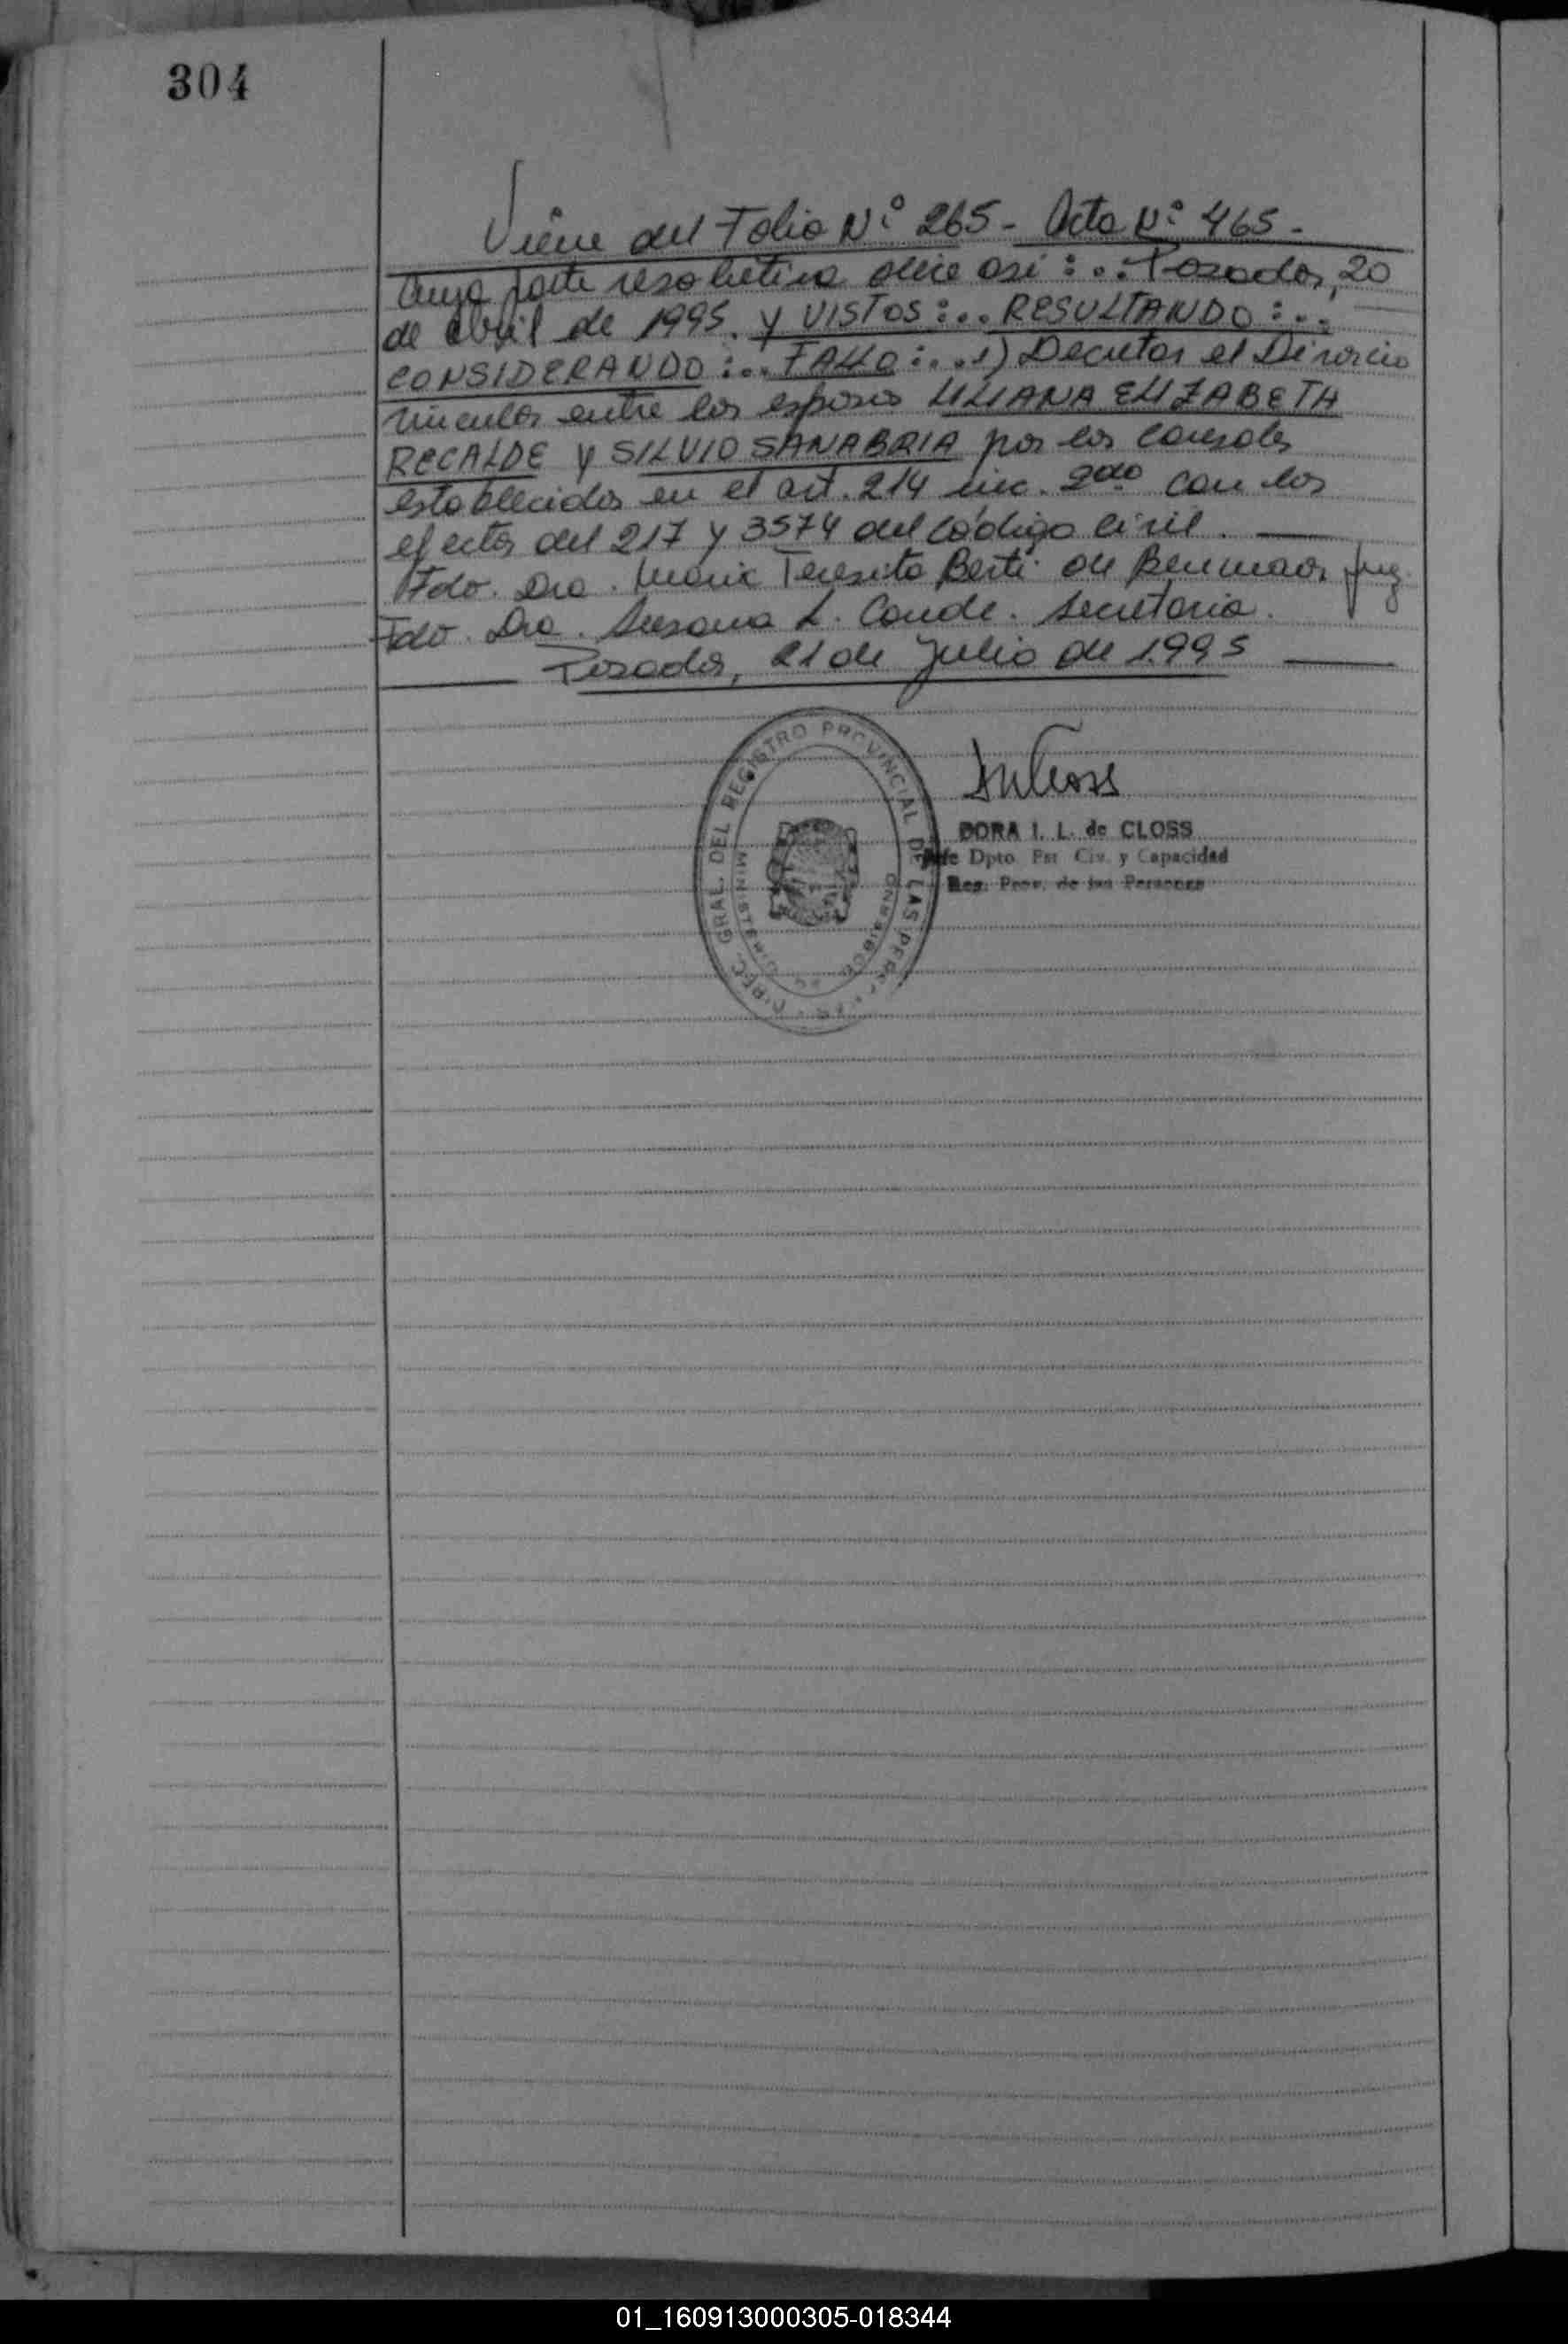 304
Viene del Folio N° 265 - Acta N° 465 -
Cuya parte resolutiva dice así: .. Posadas, 20
de abril de 1995. y VISTOS:... RESULTANDO:...
CONSIDERANDO:... FALLO:... 1) Decretar el Divorcio
vincular entre los esposos LILIANA ELIZABETH
RECALDE y SILVIO SANABRIA por las causales
establecidas en el art. 214 inc. 2do con los
efectos del 217 y 3574 del código civil.
Fdo. Dra. María Teresita Berti de Juez.
Fdo. Dra. Susana L. Conde. Secretaria.
Posadas, 21 de Julio de 1.995
DIREC. GRAL. DEL REGISTRO PROVINCIAL DE LAS PERSONAS
MINISTERIO DE GOBIERNO
DORA I. L. de CLOSS
Jefe Dpto. Est. Civ. y Capacidad
Reg. Prov. de las Personas
01_160913000305-018344